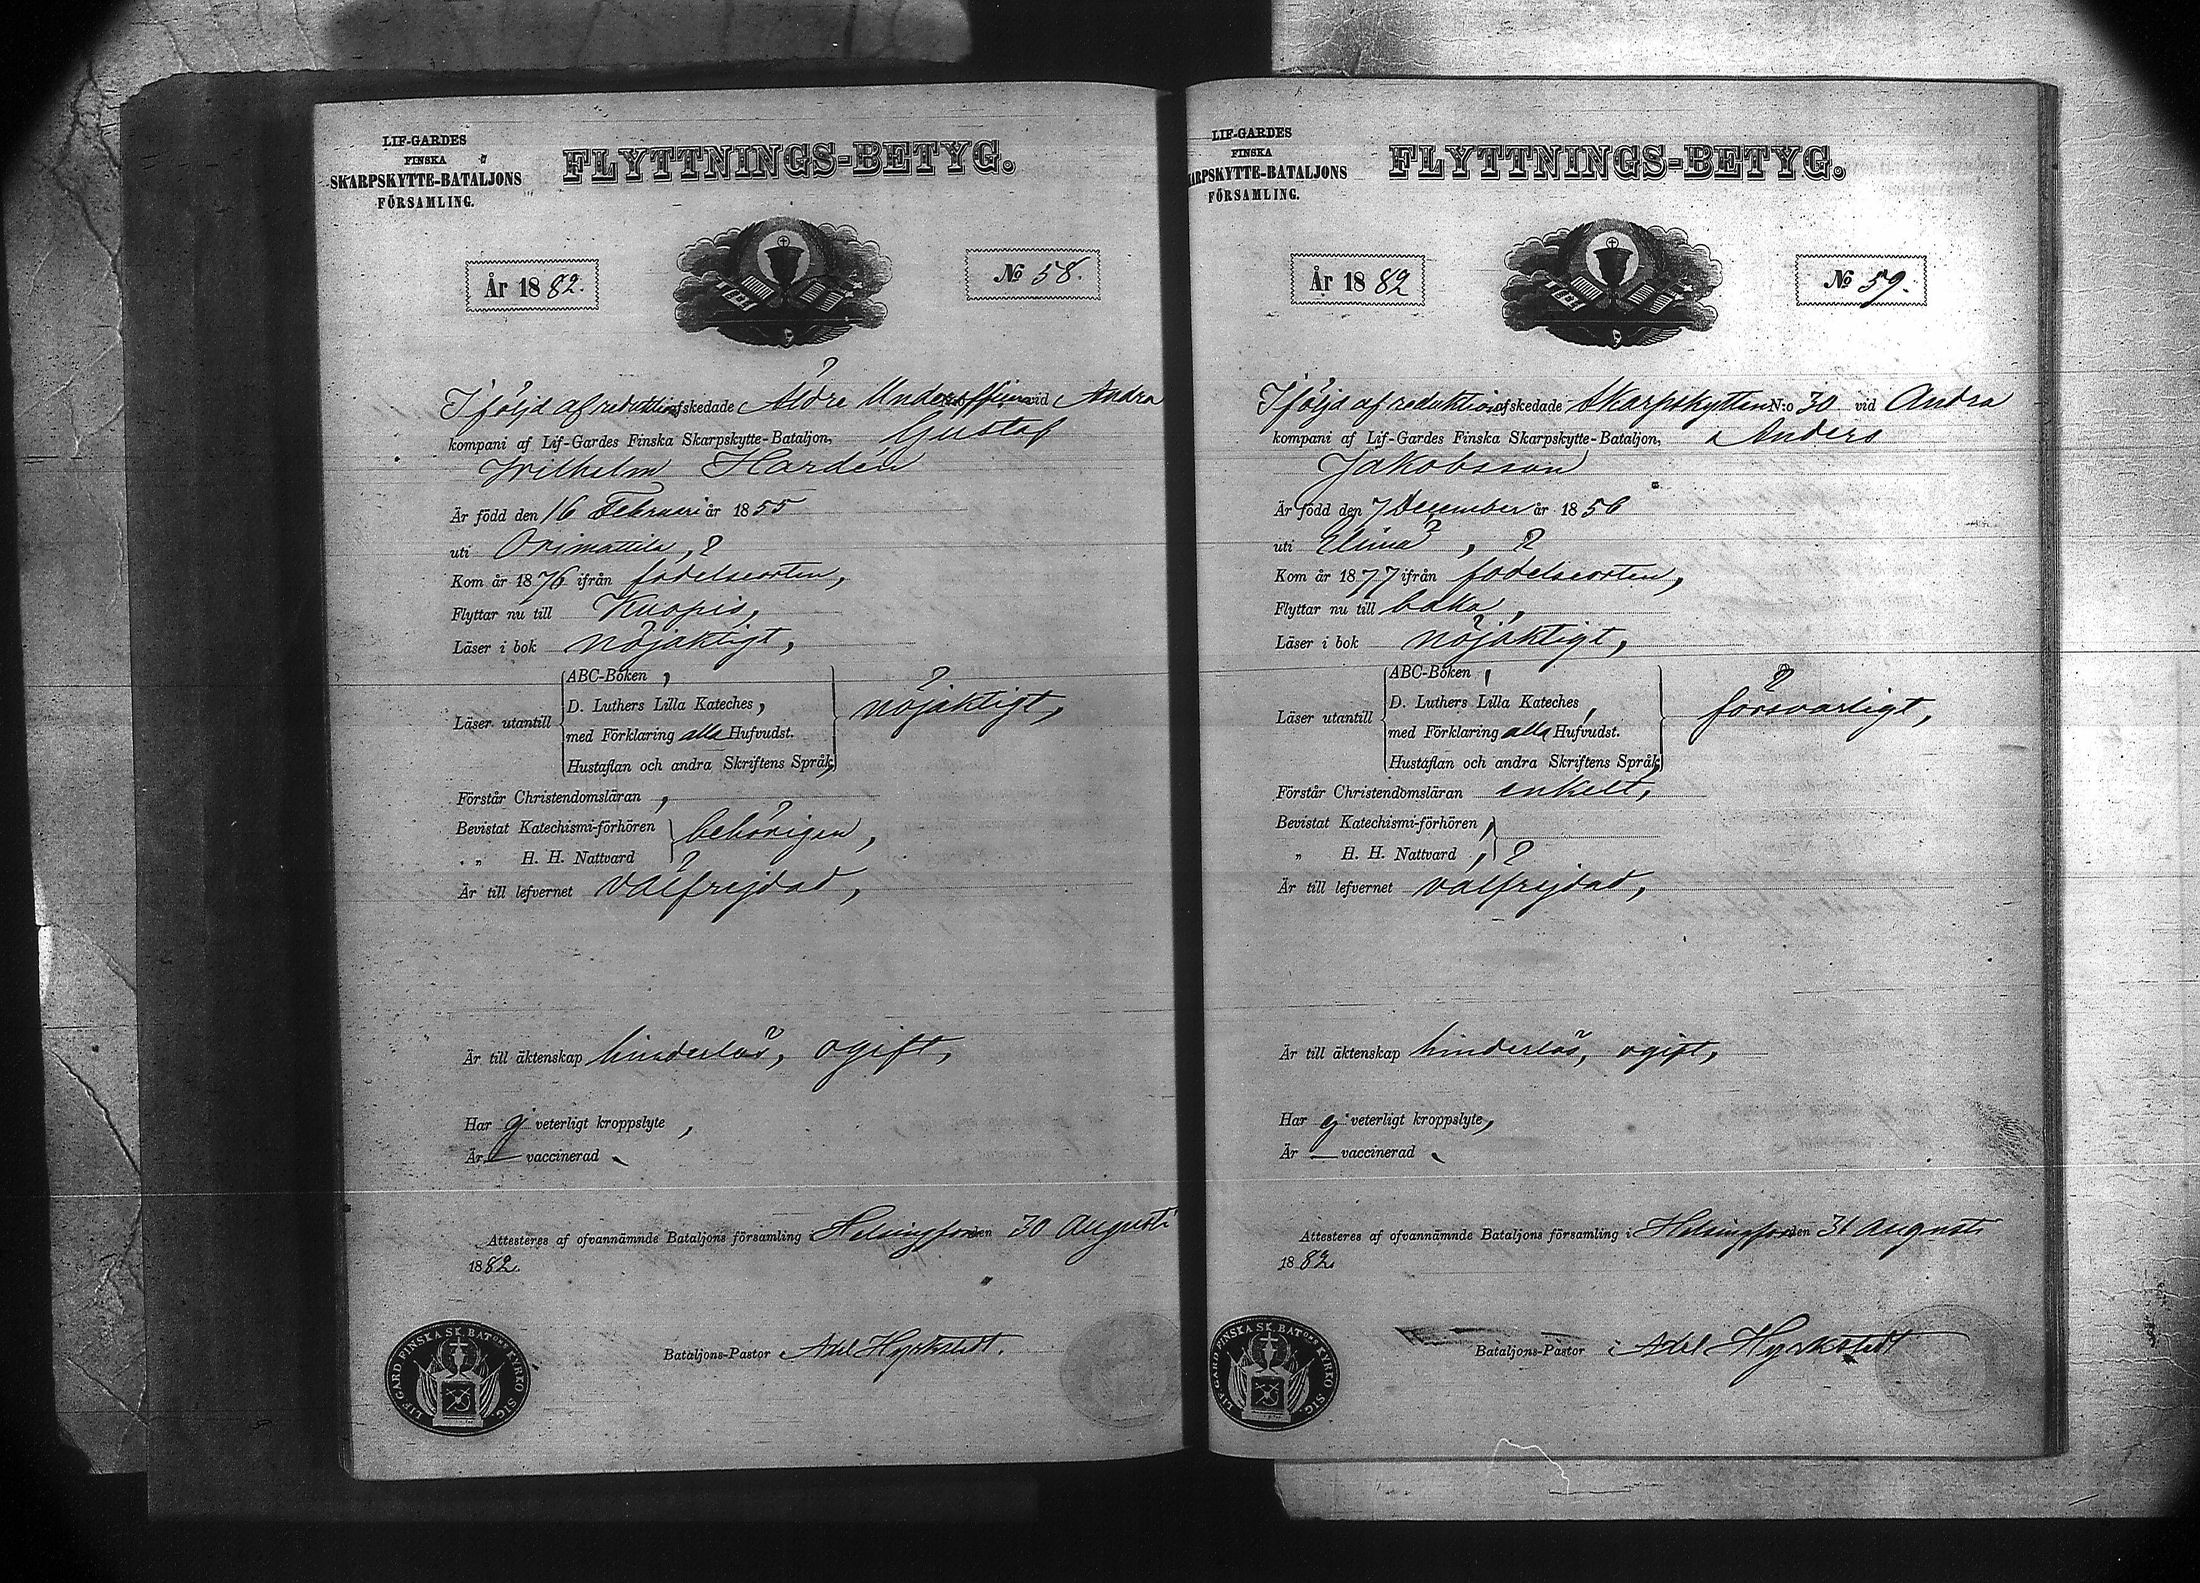 LIF-GARDES
FINSKA
SKARPSKYTTE-BATALJONS
FÖRSAMLING.
FLYTTNINGS-BETYG.
År 1882.
No 58.
I följd af reduktion afskedade Äldre Underofficeren vid Andra
kompani af Lif-Gardes Finska Skarpskytte-Bataljon, Gustaf
Wilhelm Hardén
Är född den 16 Februari år 1855
uti Orimattila,
Kom år 1876 ifrån födelseorten,
Flyttar nu till Kuopio,
Läser i bok nöjaktigt,
Läser utantill
ABC-Boken,
D. Luthers Lilla Kateches,
med Förklaring alla Hufvudst.
Hustaflan och andra Skriftens Språk,
nöjaktigt,
Förstår Christendomsläran,
Bevistat Katechismi-förhören
„ H. H. Nattvard
behörigen,
Är till lefvernet välfrejdad,
Är till äktenskap hinderlös, ogift,
Har ej veterligt kroppslyte,
Är — vaccinerad.
Attesteras af ofvannämnde Bataljons församling i Helsingfors den 30 Augusti
1882.
Bataljons-Pastor Axel Hyrkstedt.
LIF-GARD FINSKA SK. BATONS KYRKO SIG.
LIF-GARDES
FINSKA
ARPSKYTTE-BATALJONS
FÖRSAMLING.
FLYTTNINGS-BETYG.
År 1882
No 59.
I följd af reduktion afskedade Skarpskytten N:o 30 vid Andra
kompani af Lif-Gardes Finska Skarpskytte-Bataljon, Anders
Jakobsson
Är född den 7 December år 1856
uti Elimä,
Kom år 1877 ifrån födelseorten,
Flyttar nu till
Läser i bok nöjaktigt,
Läser utantill
ABC-Boken,
D. Luthers Lilla Kateches,
med Förklaring alla Hufvudst.
Hustaflan och andra Skriftens Språk,
försvarligt,
Förstår Christendomsläran enkelt,
Bevistat Katechismi-förhören,
„ H. H. Nattvard,
Är till lefvernet välfrejdad,
Är till äktenskap hinderlös, ogift,
Har ej veterligt kroppslyte,
Är — vaccinerad.
Attesteras af ofvannämnde Bataljons församling i Helsingfors den 31 Augusti
1882.
Bataljons-Pastor Axel Hyrkstedt
LIF-GARD FINSKA SK. BATONS KYRKO SIG.